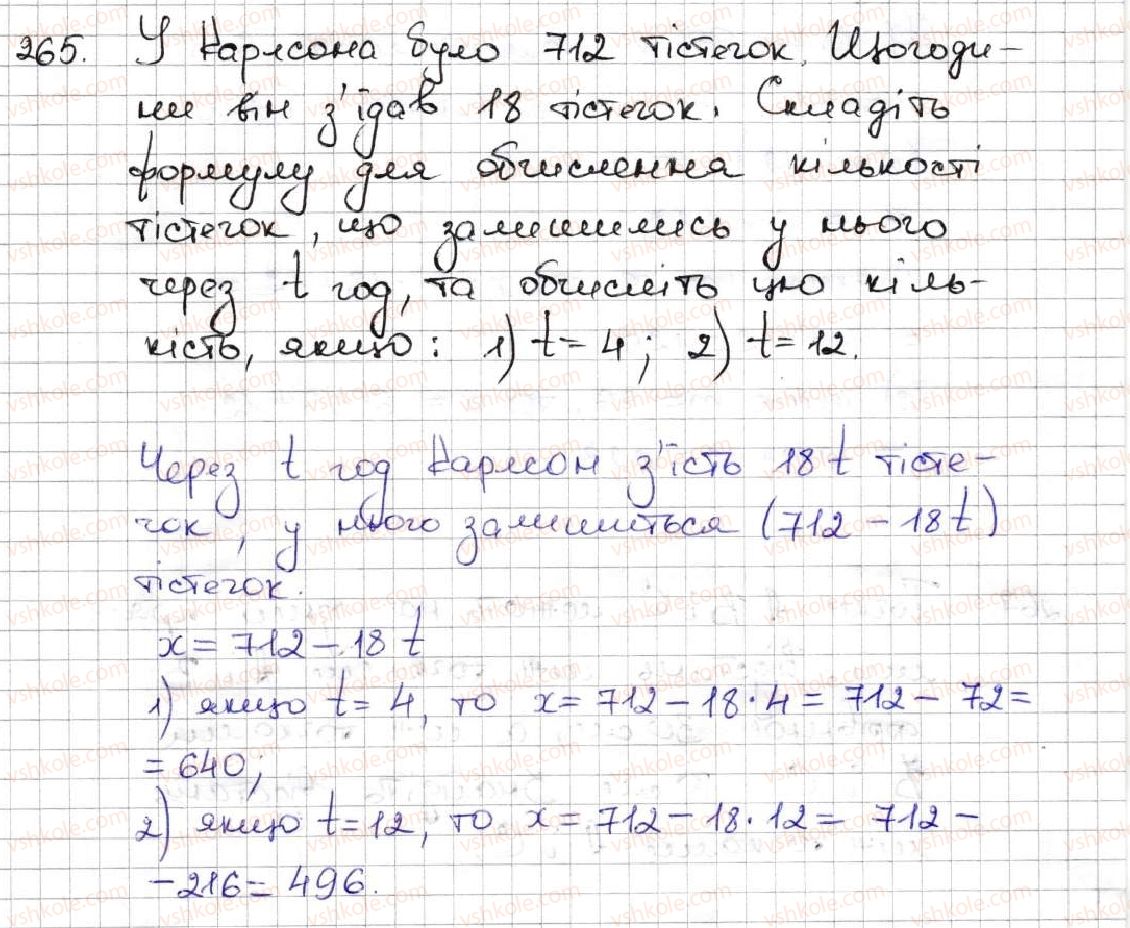 265. У Карлсона було 712 тістечок. Щогоди-
ни він з'їдав 18 тістечок. Складіть
формулу для обчислення кількості
тістечок, що залишились у нього
через t год, та обчисліть цю кіль-
кість, якщо: 1) t = 4; 2) t = 12.
Через t год Карлсон з'їсть 18 t тісте-
чок, у нього залишиться (712 - 18t)
тістечок.
x = 712 - 18 t
1) якщо t = 4, то x = 712 - 18 · 4 = 712 - 72 =
= 640;
2) якщо t = 12, то x = 712 - 18 · 12 = 712 -
- 216 = 496.
vshkole.com